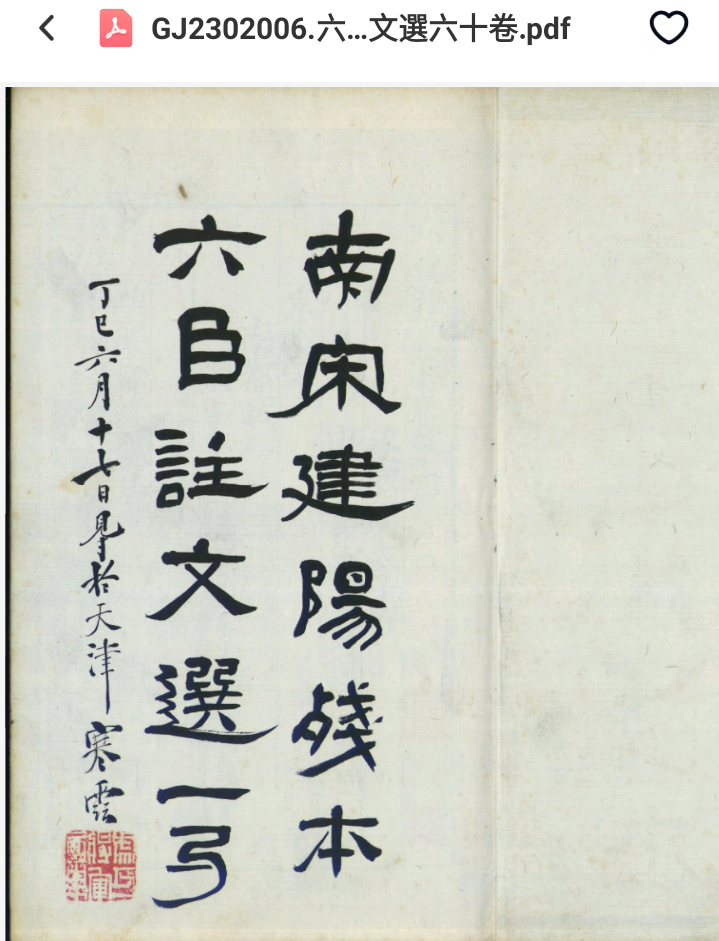 GJ2302006.六…文選六十卷.pdf
南宋建陽殘本
六臣註文選一弓
丁巳六月十七日㝵於天津 寒雲